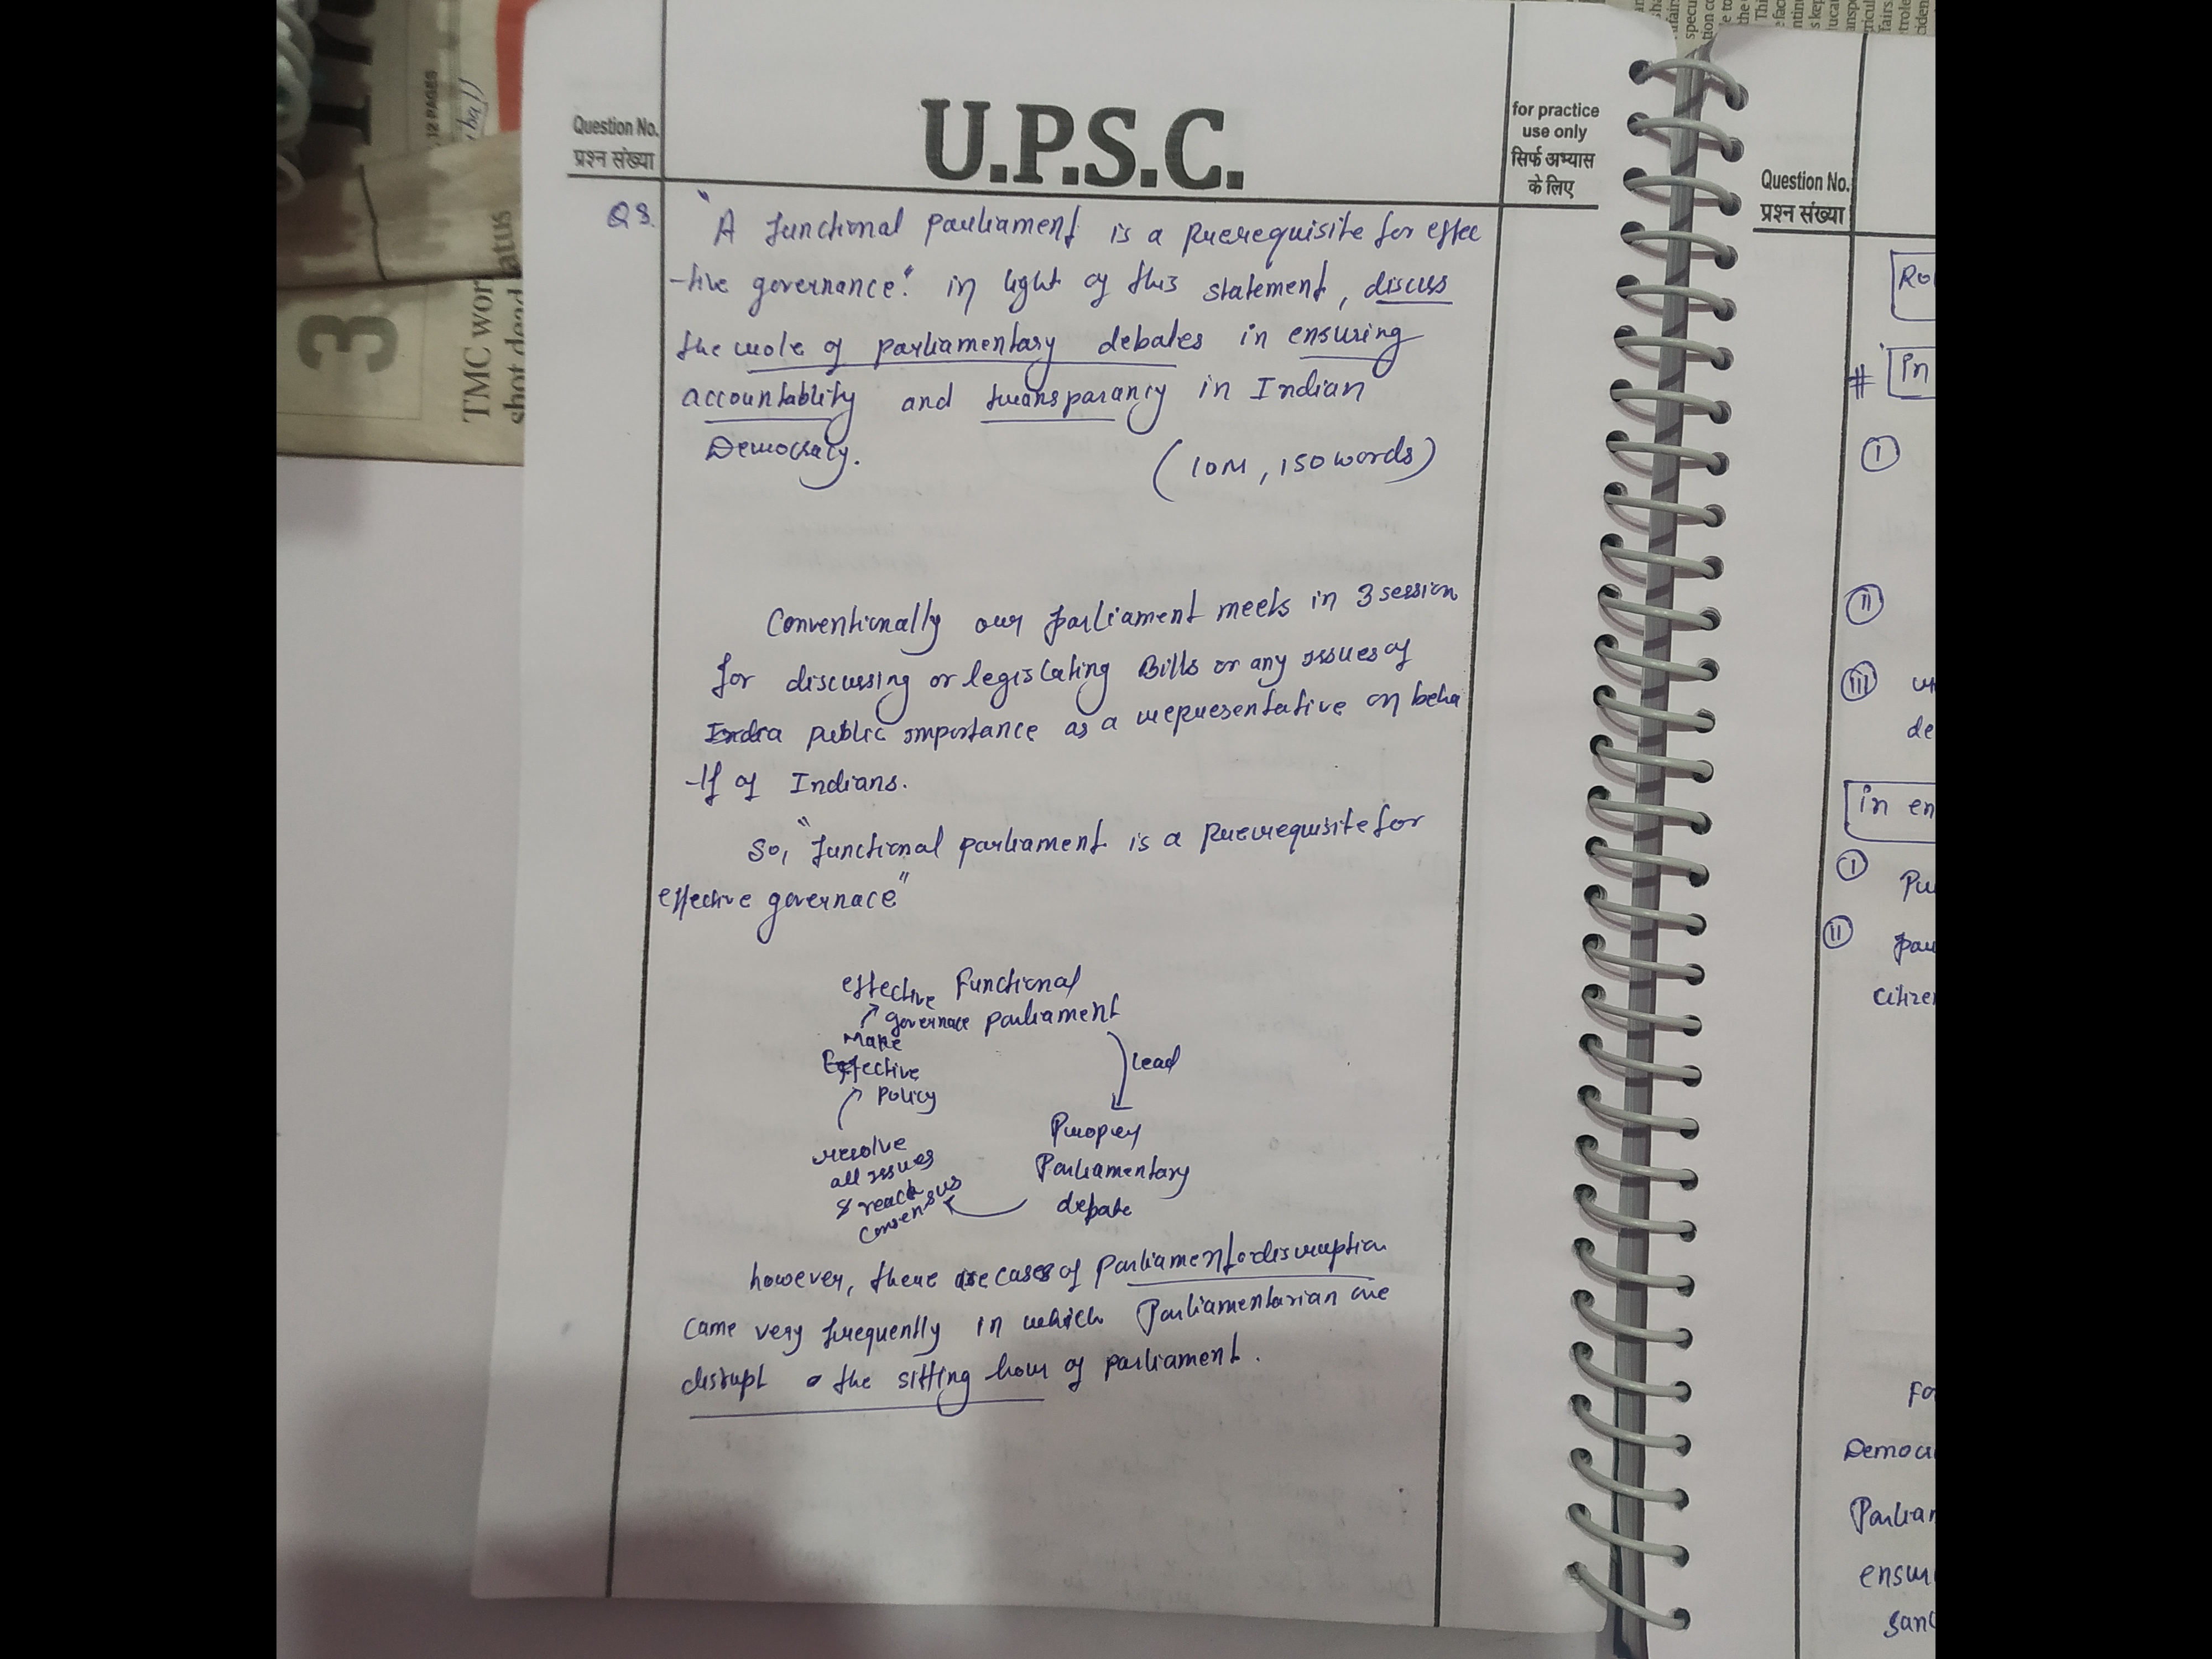 12 PAGES
3
TMC wor
shot dead
atus
Question No.
प्रश्न संख्या
U.P.S.C.
for practice
use only
सिर्फ अभ्यास
के लिए
Q 8.
"A functional parliament is a prerequisite for effec
-tive governance". in light of this statement, discuss
the role of parliamentary debates in ensuring
accountablity and transparancy in Indian
Democracy.
(10M, 150 words)
Conventionally our parliament meets in 3 session
for discussing or legislating Bills or any issues of
India public importance as a representative on beha
-lf of Indians.
So, "functional parliament is a prerequisite for
effective governace"
effective
governace
Functional
parliament
Lead
Proper
Parliamentary
debate
resolve
all issues
& reach
consensus
Make
Effective
policy
however, there are cases of parliament disruption
came very frequently in which Parliamentarian are
disrupt the sitting hour of parliament.
Question No.
प्रश्न संख्या
Ro
#
In
I
II
III
de
in en
I
Pu
II
Citizen
Fo
Democr
Parliar
ensur
sanc